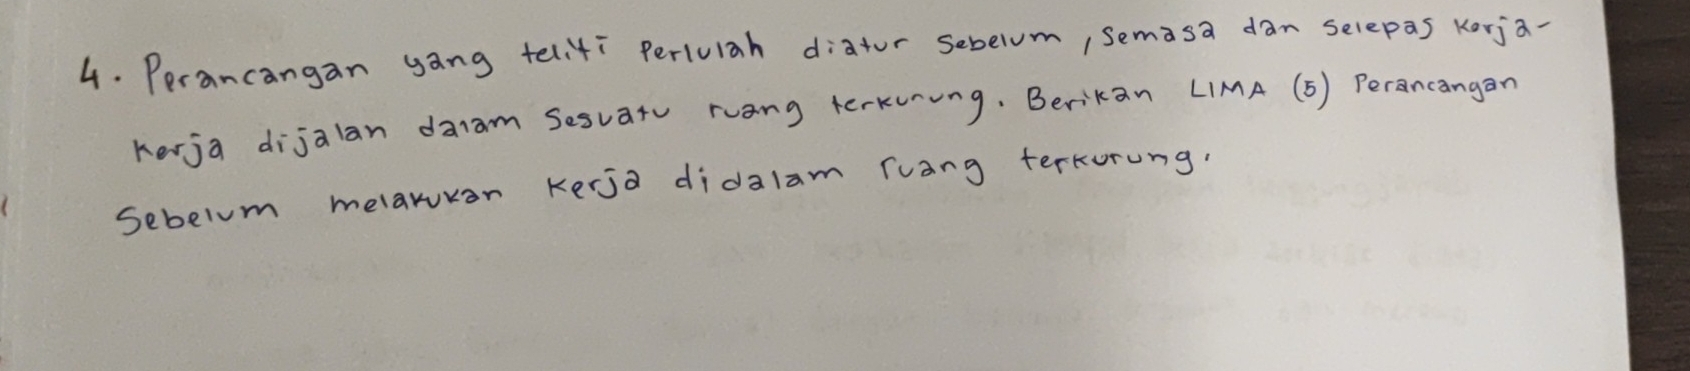 4. Perancangan yang teliti Perlulah diatur Sebelum, Semasa dan Selepas Kerja-
Kerja dijalan dalam Sesuatu ruang terkurung. Berikan LIMA (5) Perancangan
Sebelum melakukan Kerja didalam ruang terkurung.